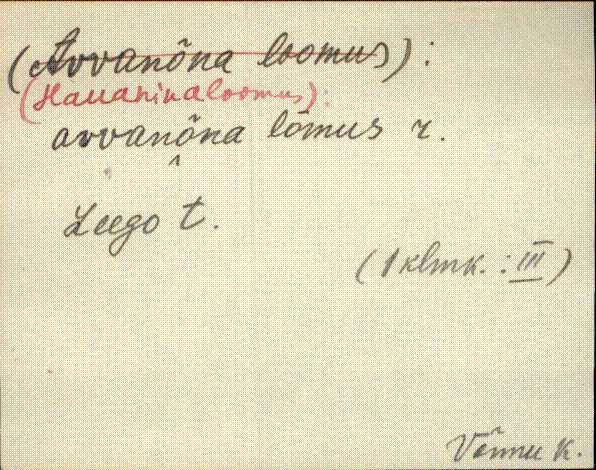 (Avvanõna loomus):
(Hauaninaloomus):
avvanõna lomus r.
^
Leego t.
(1 klmk. : III)
Võnnu K.